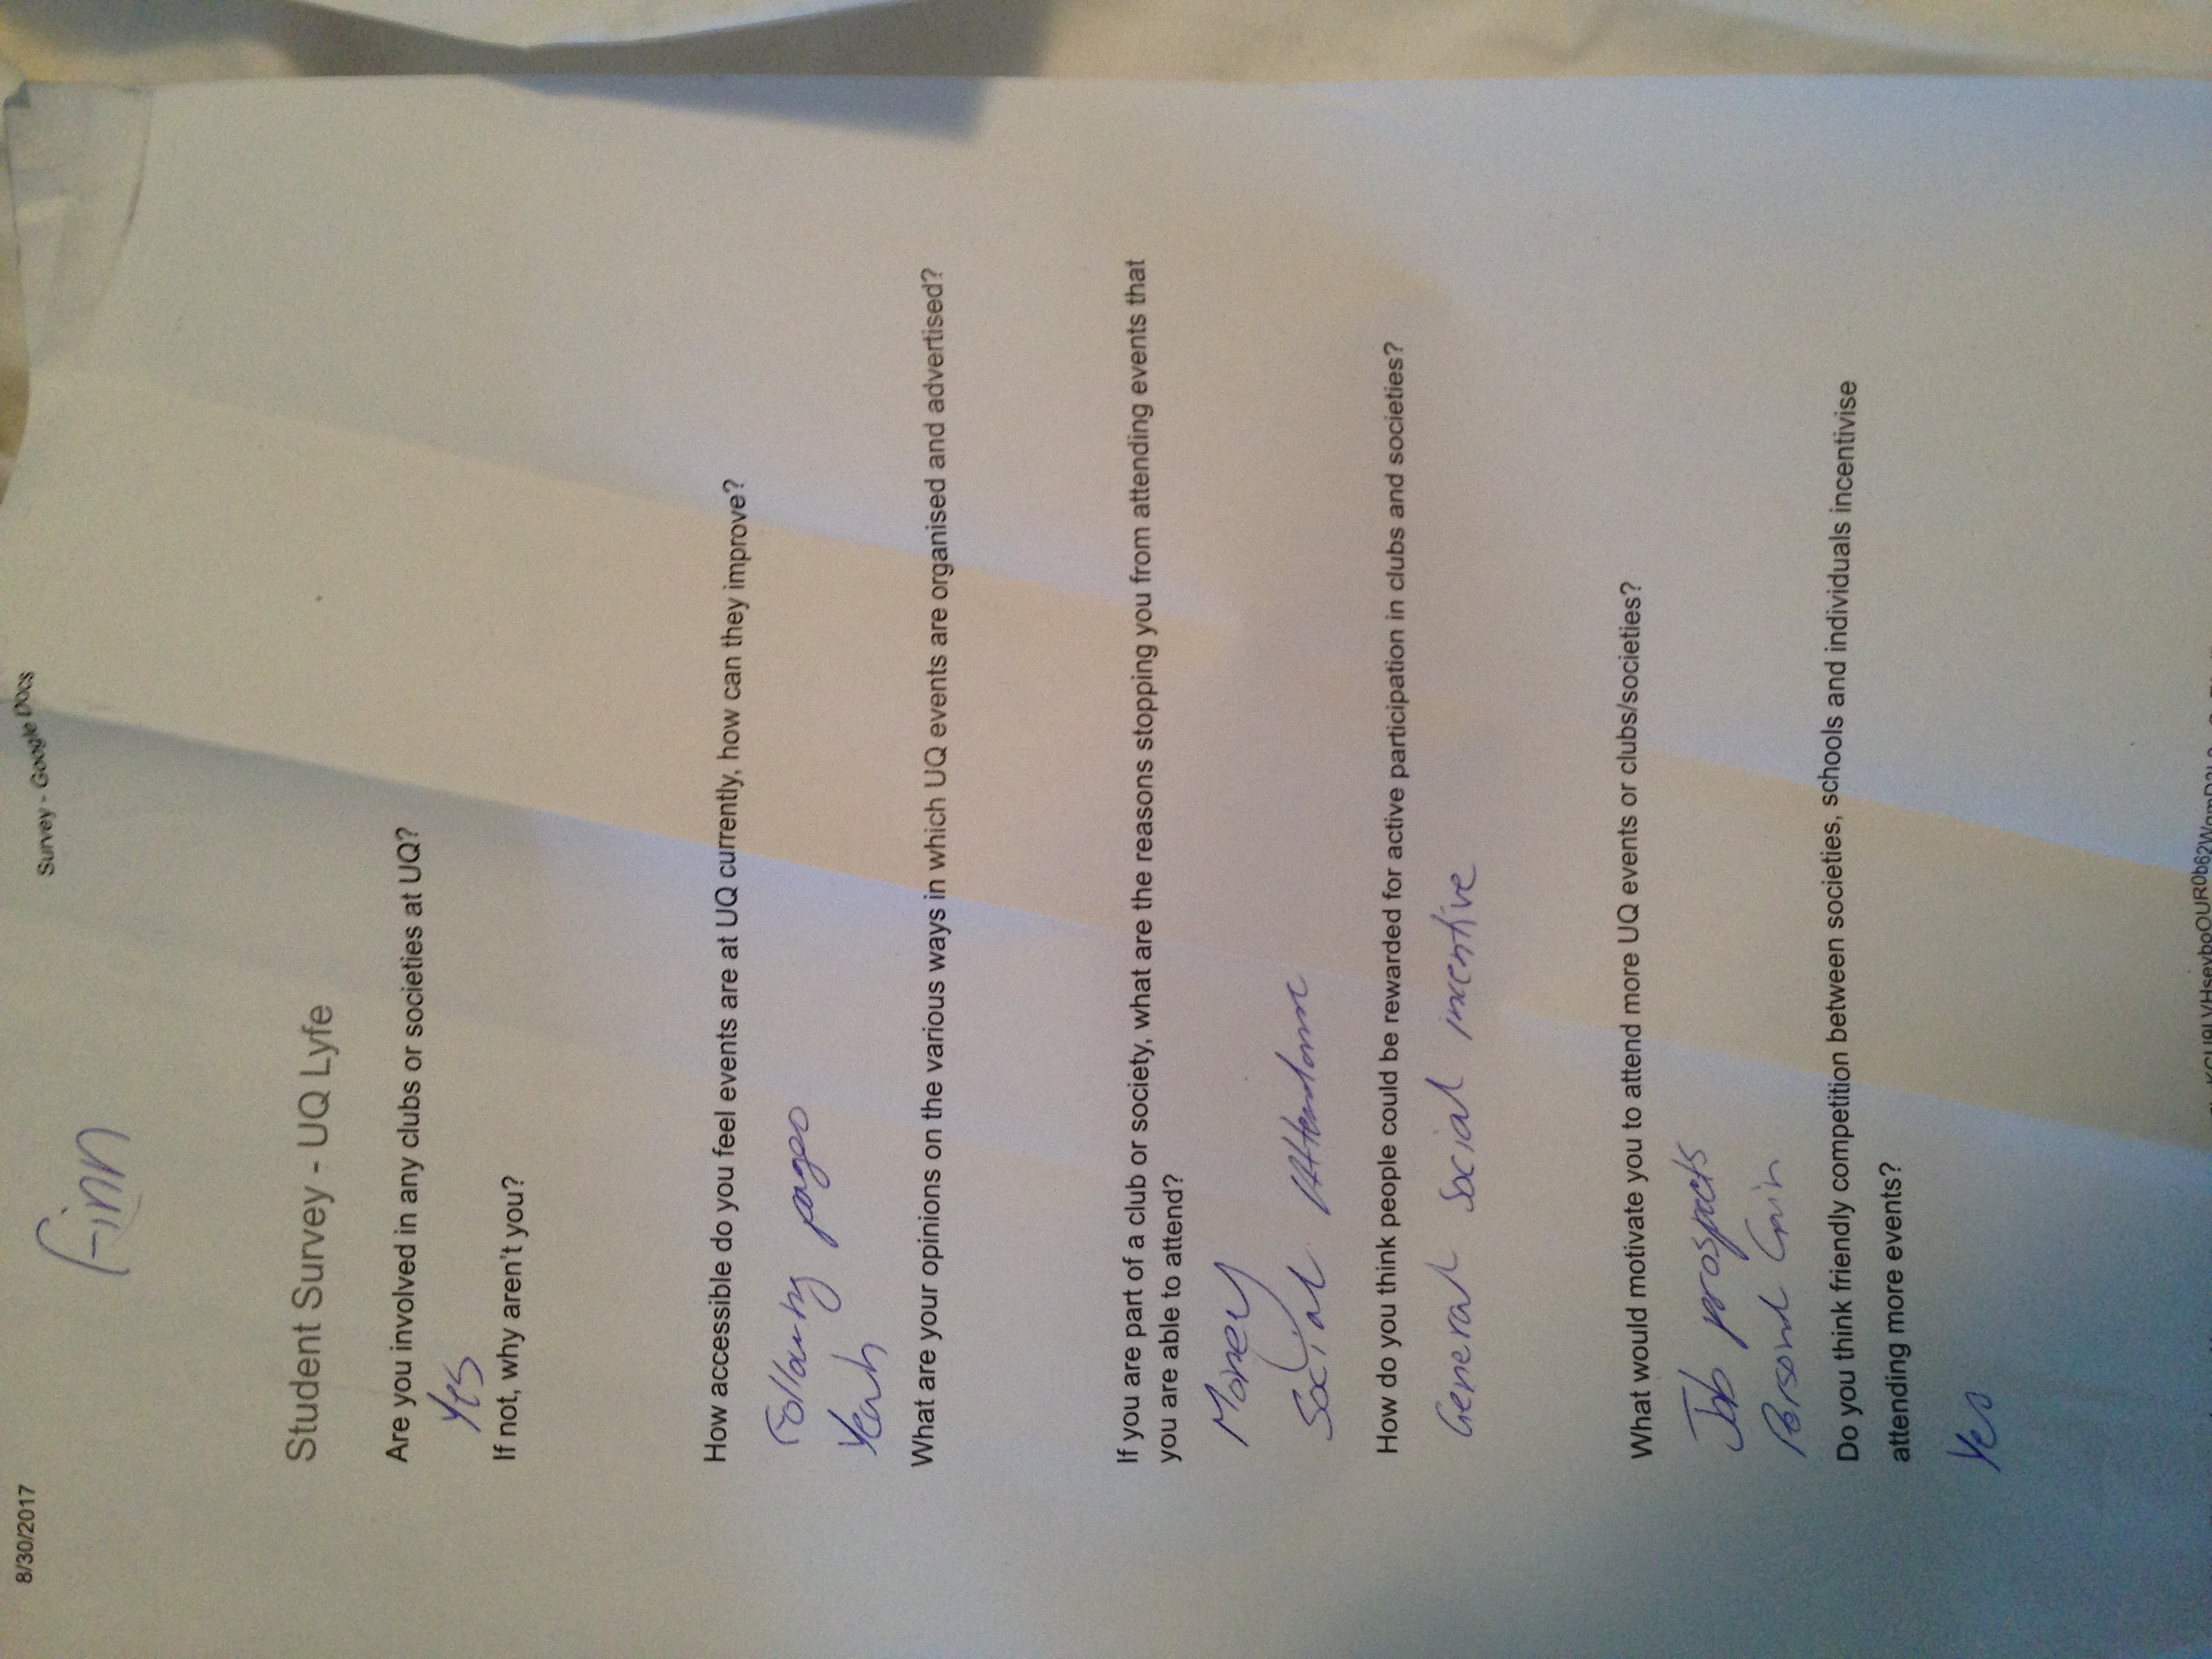 8/30/2017
Survey - Google Docs
Finn
Student Survey - UQ Lyfe
Are you involved in any clubs or societies at UQ?
Yes
If not, why aren't you?
How accessible do you feel events are at UQ currently, how can they improve?
Following pages
Yeah
What are your opinions on the various ways in which UQ events are organised and advertised?
If you are part of a club or society, what are the reasons stopping you from attending events that
you are able to attend?
Money
Social Attendance
How do you think people could be rewarded for active participation in clubs and societies?
General Social incentive
What would motivate you to attend more UQ events or clubs/societies?
Job prospects
Personal Gain
Do you think friendly competition between societies, schools and individuals incentivise
attending more events?
Yes